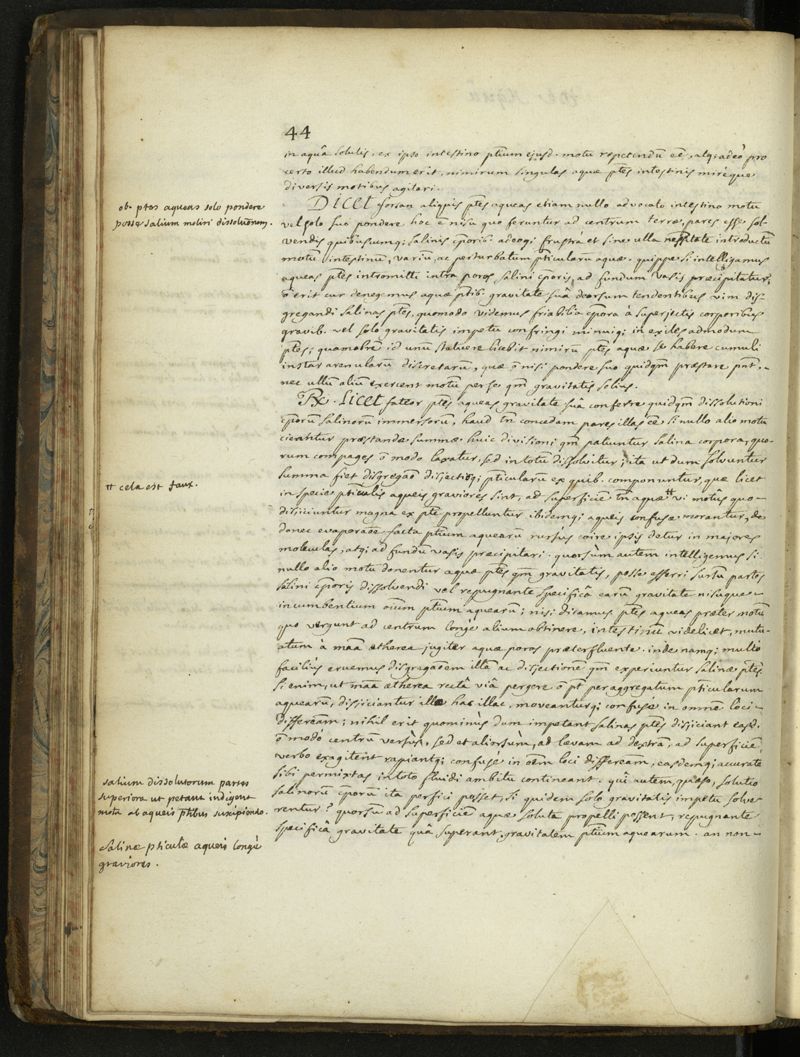 44
in aquâ solutis, ex ipso intestino ptium ejusd. motu repetendū eē, atq; adeò pro
certo illud habendum erit, nimirum singulas aquæ ptes intestinis mirèque
diversis motibus agitari.
ob. ptes aqueas solo pondere
posse salium moliri dissolutionem.
Dicet forsan aliquis ptes aqueas etiam nullo advocato intestino motu
vel solo suo pondere hoc ē nisu quo feruntur ad centrum terræ, pares esse sol-
vendis quibuscumq; salinis cporib; adeoq; frustrà et sine ulla neſſitate introductū
motū intestinū, variū, ac perturbatum pticularū aquæ. quippe si intelligamus
aqueas ptes intromitti intra poros salini cporis, ad fundum vasis præcipitatur,
ō erit cur denegemus aquæ ptib; gravitate suâ deorsum tendentibus vim dis-
gregandi salinas ptes, quomodo videmus friabilia cpora à superjectis corporibus
gravib. vel solo gravitatis impetu confringi minuiq; in exiles admodum
ptes; quamobrē id unū statuere licebit nimirū ptes aquæ se habere cumuli
instar arenularū discretarū, quæ ō nisi pondere suo quidqm præstare pnt.
nec ullū aliū exercent motū per se qm gravitatis solius.
Rx. Licet fateor ptes aqueas gravitate suâ conferre quidqm dissolutioni
cporū salinorū immersorū, haud tn concedam pares illas eē si nullo alio motu
cieantur præstandæ summæ huic divisioni qm patiuntur salina corpora, quo-
rum compages ō modo laxatur, sed in totū dissolvitur; ita ut dum solvuntur
summa fiet disgregao disjectioq; pticularū ex quib. componuntur, quæ licet
π cela est faux.
in specie pticulis aqueis graviores sint, ad superficiē tn aquæ π vi motûs quo
disjiciuntur magna ex pte propelluntur ibidemq; aqueis confusæ morantur, do-
donec evaporaoe facta ptium aquearū rursus coire ipsis detur in majores
moleculas, atq; ad fundū vasis præcipitari. quorsum autem intelligemus si
nullo alio motu donentur aquæ ptes qm gravitatis, posse efferri sursū partes
salini cporis dissolvendi vel repugnante specificâ earū gravitate nisuque
incumbentium oium ptium aquearū; nisi dicamus ptes aqueas præter motū
quo vergunt ad centrum longè alium obtinere, intestinū videlicet, mutu-
atum à maa ætherea jugiter aquæ poros præterfluente. inde namq; multò
facilius eruemus disgregaoem illā ac disjectionē qm experiuntur salinæ ptes
si enim, ut maa ætherea rectâ viâ pergere ō pt per aggregatum pticularum
aquearū, disjiciantur illæ hac illac, moveanturq; confusè in omnē loci
differēam; nihil erit quominùs dum impetant salinas ptes disjiciant easd.
ō modò centrū versùs, sed et aliorsùm, ad lævam ad dextrā, ad superficiē,
verbo exagitent rapiantq; confusè in oēm loci differeam, easdemq; accuratè
salium dissolutorum partes
superiora ut petant indigent
motu ab aqueis ptibus suscipiendo.
sibi permixtas in toto fluidi ambitu contineant. quî autem, quæso, solutio
salinorū cporū ita perfici posset, si quidem solo gravitatis impetu solve-
rentur? quorsū ad superficiē aquæ soluta propelli possent, repugnante
salinæ pticulæ aqueis longè
graviores.
specificâ gravitate quâ superant gravitatem ptium aquearum. an non